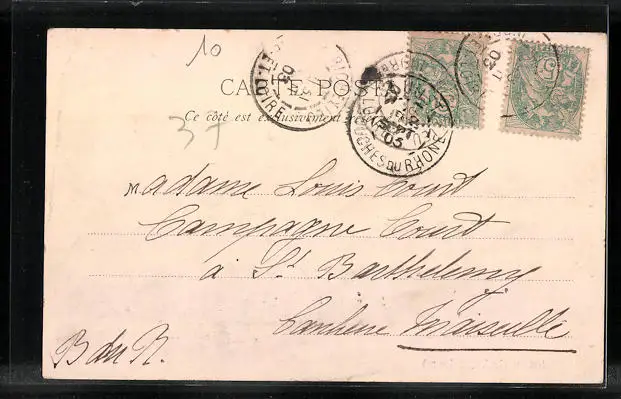 10
CARTE POSTALE
Ce côté est exclusivement
37
ET-LOIRE
03
BOUCHES DU RHONE
03
5
Madame Louis Court
Campagne Court
à St Barthelemy
Banlieue Marseille
B du R.